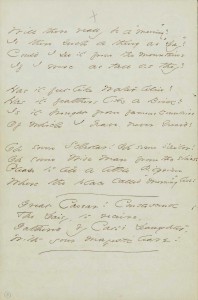 x
Will there really be a "morning"?
Is there such a thing as "Day"?
Could I see it from the mountains
If I were as tall as they?
Has it feet like Water lilies?
Has it feathers like a Bird?
Is it brought from famous countries
Of which I have never heard?
Oh some Scholar! Oh some Sailor!
Oh some Wise Man from the skies!
Please to tell a little Pilgrim
Where the place called "morning" lies!
Great Caesar! Condescend
The Daisy, to receive,
Gathered by Cato's Daughter,
With your majestic leave!